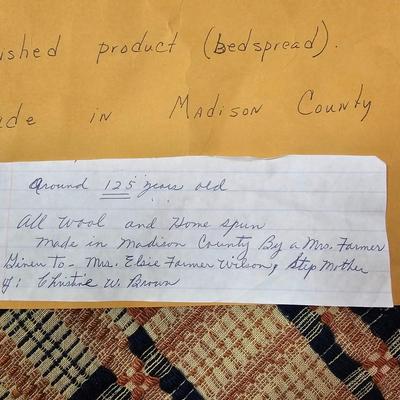 ished product (bedspread).
ade in Madison County
Around 125 years old
All wool and Home spun
Made in Madison County By a Mrs. Farmer
Given to - Mrs. Elsie Farmer Wilson, Step Mother
of: Christine W. Brown